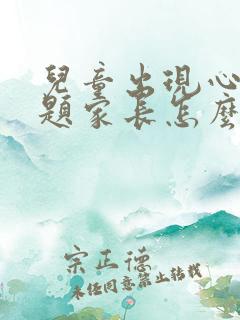 兒童出現心
題家長怎麼
宋正德
未經同意禁止轉載